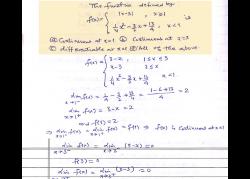 The function defined by
f(x) = { |x-3| , x≥1
1/4 x² - 3/2 x + 13/4 , x<1 is
(a) Continuous at x=1 (b) Continuous at x=3
(c) differentiable at x=1 (d) All of the above
f(x) = { 3-x , 1≤x≤3
x-3 , 3≤x
1/4 x² - 3/2 x + 13/4 x<1
lim x→1⁻ f(x) = 1/4 - 3/2 + 13/4 = (1-6+13)/4 = 2
lim x→1⁺ f(x) = 3-x = 2
and f(1) = 2
lim x→1⁻ f(x) = lim x→1⁺ f(x) = f(1) ⇒ f(x) is continuous at x=1
lim x→3⁻ f(x) = lim x→3⁻ (3-x) = 0
f(3) = 0
lim x→3⁺ f(x) = lim x→3⁺ (x-3) = 0